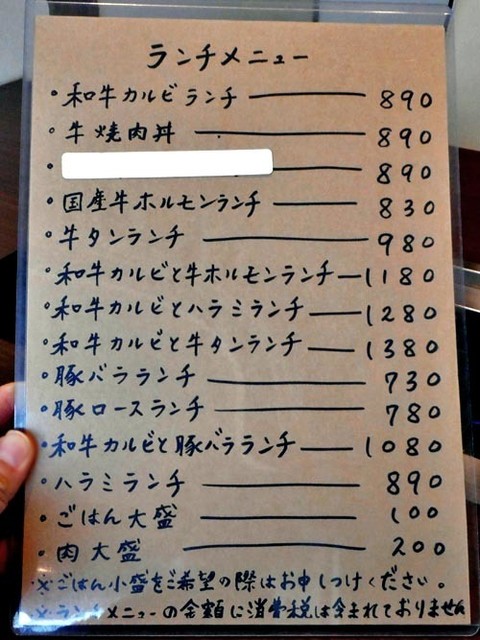 ランチメニュー
・和牛カルビランチ ― 890
・牛焼肉丼 ― 890
・ ― 890
・国産牛ホルモンランチ ― 830
・牛タンランチ ― 980
・和牛カルビと牛ホルモンランチ ― 1180
・和牛カルビとハラミランチ ― 1280
・和牛カルビと牛タンランチ ― 1380
・豚バラランチ ― 730
・豚ロースランチ ― 780
・和牛カルビと豚バラランチ ― 1080
・ハラミランチ ― 890
・ごはん大盛 ― 100
・肉大盛 ― 200
※ごはん小盛をご希望の際はお申しつけください。
※ランチメニューの金額に消費税は含まれておりません